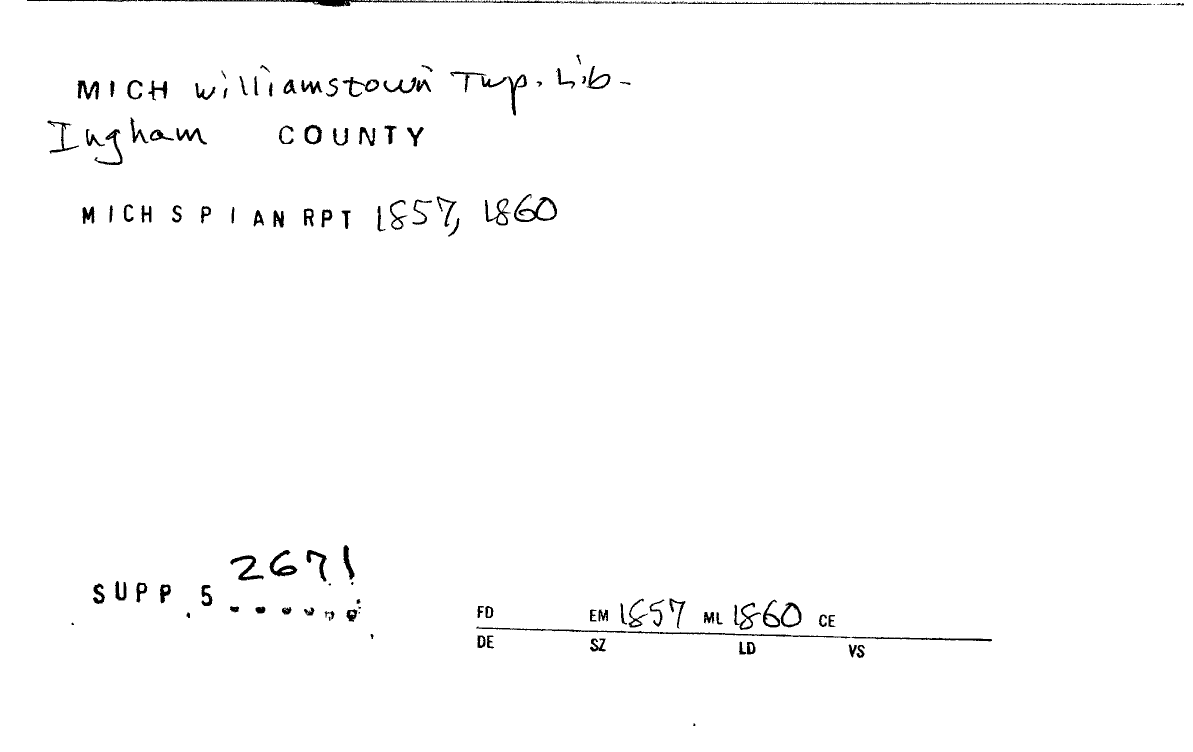 MICH Williamstown Twp. Lib-
Ingham COUNTY
MICH S P I AN RPT 1857, 1860
2671
SUPP. 5 ......
FD EM 1857 ML 1860 CE
DE SZ LD VS